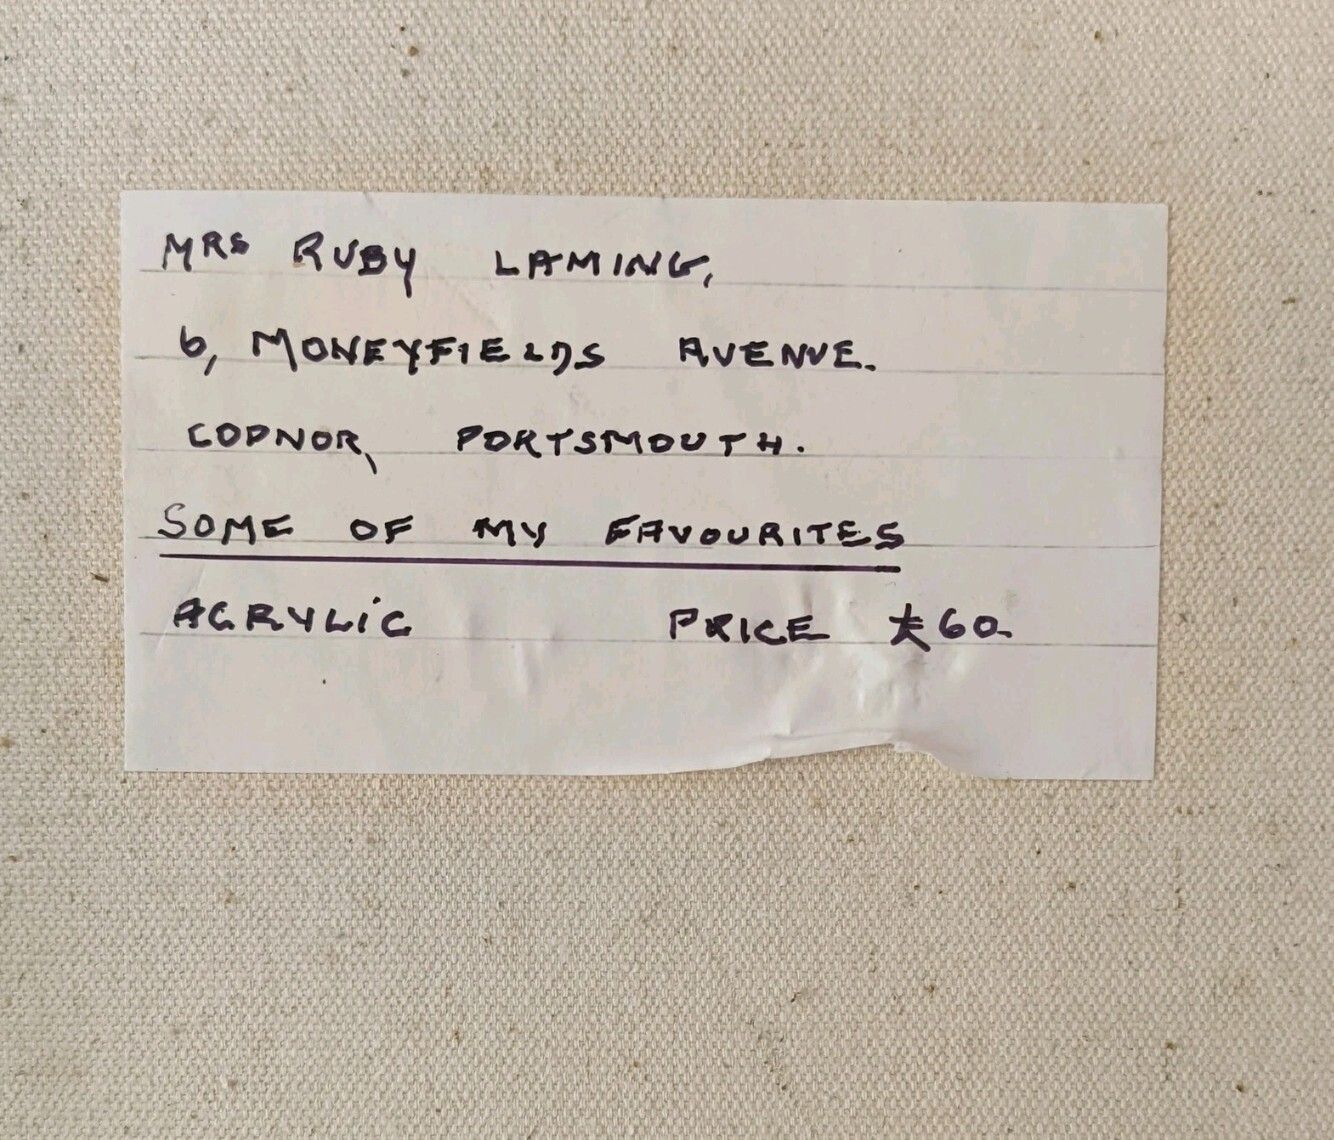 MRS RUBY LAMING,
6, MONEYFIELDS AVENUE.
COPNOR, PORTSMOUTH.
SOME OF MY FAVOURITES
ACRYLIC PRICE £60